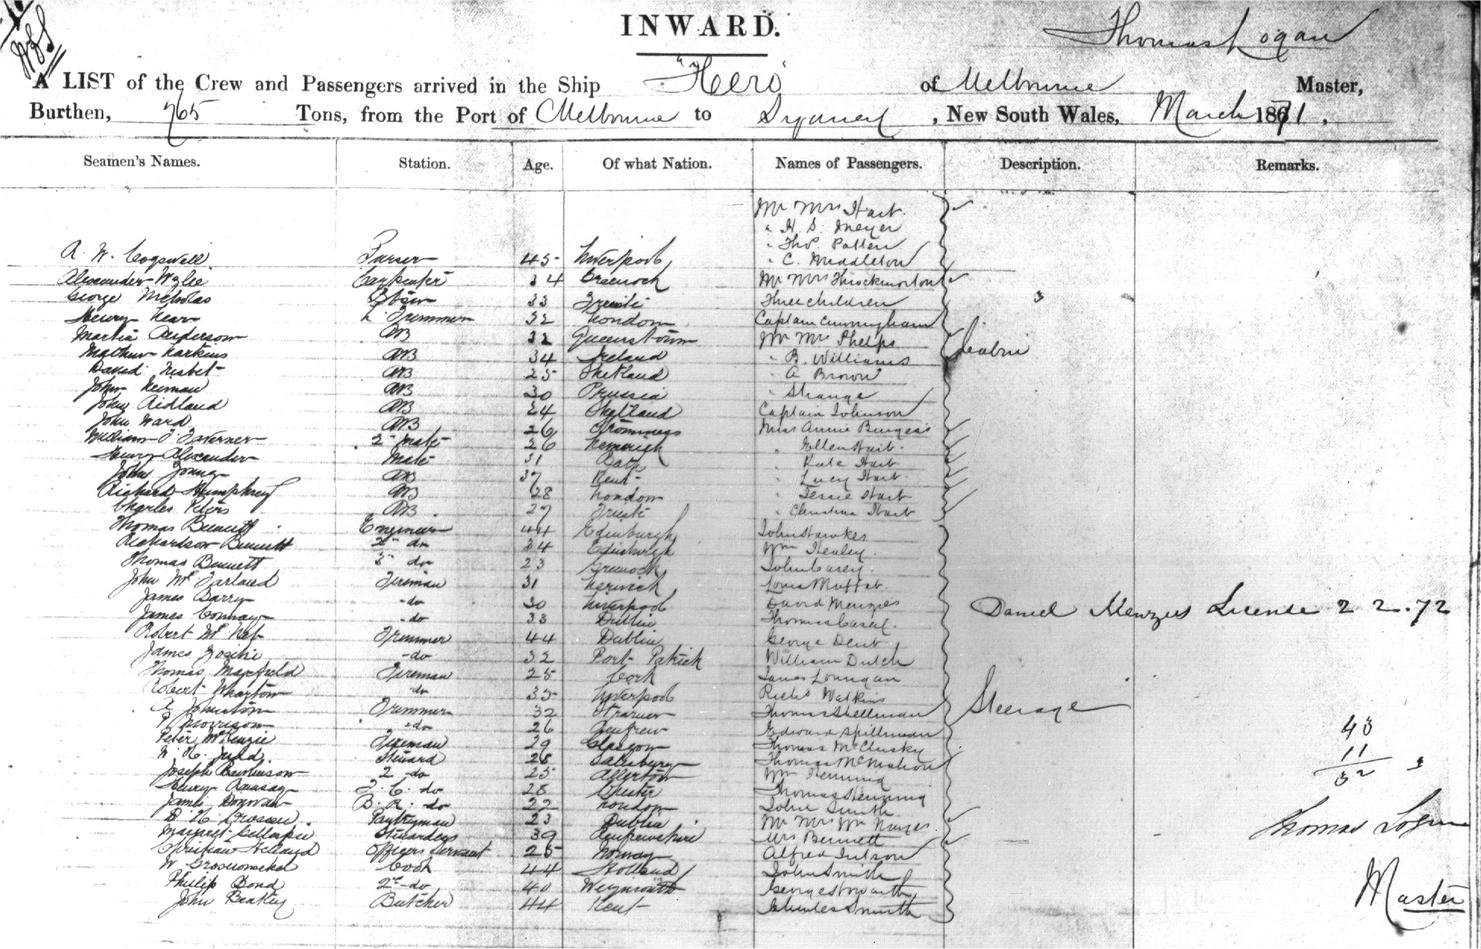 INWARD.
Thomas Logan
A LIST of the Crew and Passengers arrived in the Ship "Hero" of Melbourne Master,
Burthen, 765 Tons, from the Port of Melbourne to Sydney, New South Wales, March 1871.
Seamen's Names. Station. Age. Of what Nation. Names of Passengers. Description. Remarks.
Mr Mrs Hart
" H. S. Meyer
" Thos. Patten
A. W. Cogswell Purser 45 Liverpool " C. Middleton
Alexander Wylie Carpenter 34 Greenock Mr Mrs Throckmorton
George Nicholas 33 Three children
Henry L. Trimmer 32 London Captain Cunningham
Martin Anderson AB 32 Queenstown Mr Mrs Phelps Cabin
Mathew Harkins AB 34 Ireland " B. Williams
David Nisbet AB 25 Shetland " A Brown
John Neiman AB 30 Prussia " Strange
John Aidland AB 24 Shetland Captain Johnson
John Ward AB 26 Miss Annie Burgess
William J Taverner 2nd Mate 26 " Ellen Hart
Henry Alexander Mate 31 Bath " Kate Hart
John Young AB 37 Kent " Lucy Hart
Richard Humphrey AB 28 London " Jessie Hart
Charles Peters AB 27 Trieste " Christina Hart
Thomas Bennett Engineer 44 Edinburgh John Hawkes
Richardson Bennett 2nd do 34 Edinburgh Wm Healey
Thomas Bennett 3rd do 23 Greenock John Carey
John McFarland Fireman 31 Lerwick Louis Moffat
James Barry do 30 Liverpool David Menzies Daniel Menzies License 2 2.72
James Conway do 33 Dublin Thomas
Robert McNab Trimmer 44 Dublin George Dent
James do 32 Port Patrick William Dutch
Thomas Maxfield Fireman 25 Cork James Lonnigan
Robert Wharton do 35 Liverpool Richd Watkins
E Johnston Trimmer 32 Stranraer Thomas Shellman Steerage
P Morrison do 26 Renfrew Edward Spillman 43
Peter McKenzie Fireman 29 Glasgow Thomas McClusky 11
W. H. Judd Steward 28 Salisbury Thomas McMahon 32
Joseph Bewlinson 2 do 25 Allerton Wm Henning
Henry Ramsay do 28 Chester Thomas Henning
James Donovan B. R. do 22 London John Smith
Pantryman 23 Dublin Mr Mrs Wm Thomas Logan
Margaret Gillespie Stewardess 39 Renfrewshire Mrs Bennett
Officers Servant 25 Norway Alfred
W. Cook 44 Holland John Smith
Phillip Bond 2nd do 40 Weymouth George Smith Master
John Beakley Butcher 44 Kent Charles Smith